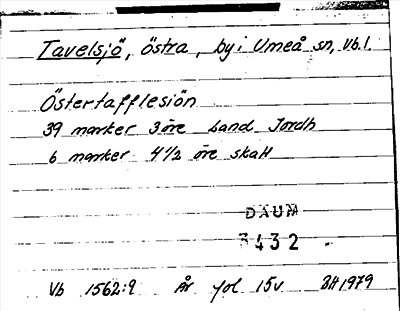 Tavelsjö, östra, by i Umeå sn, Vb.l.
Östertafflesiön
39 marker 3 öre Land Jordh
6 marker 4 1/2 öre skatt
DAUM
3432
Vb 1562:9 År fol 15v BH 1979